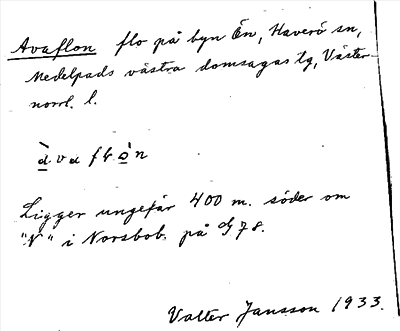 Avaflon flo på byn Ön, Haverö sn,
Medelpads västra domsagas tg, Väster-
norrl. l.
Ligger ungefär 400 m. söder om
"N" i Norsbob. på 78.
Valter Jansson 1933.